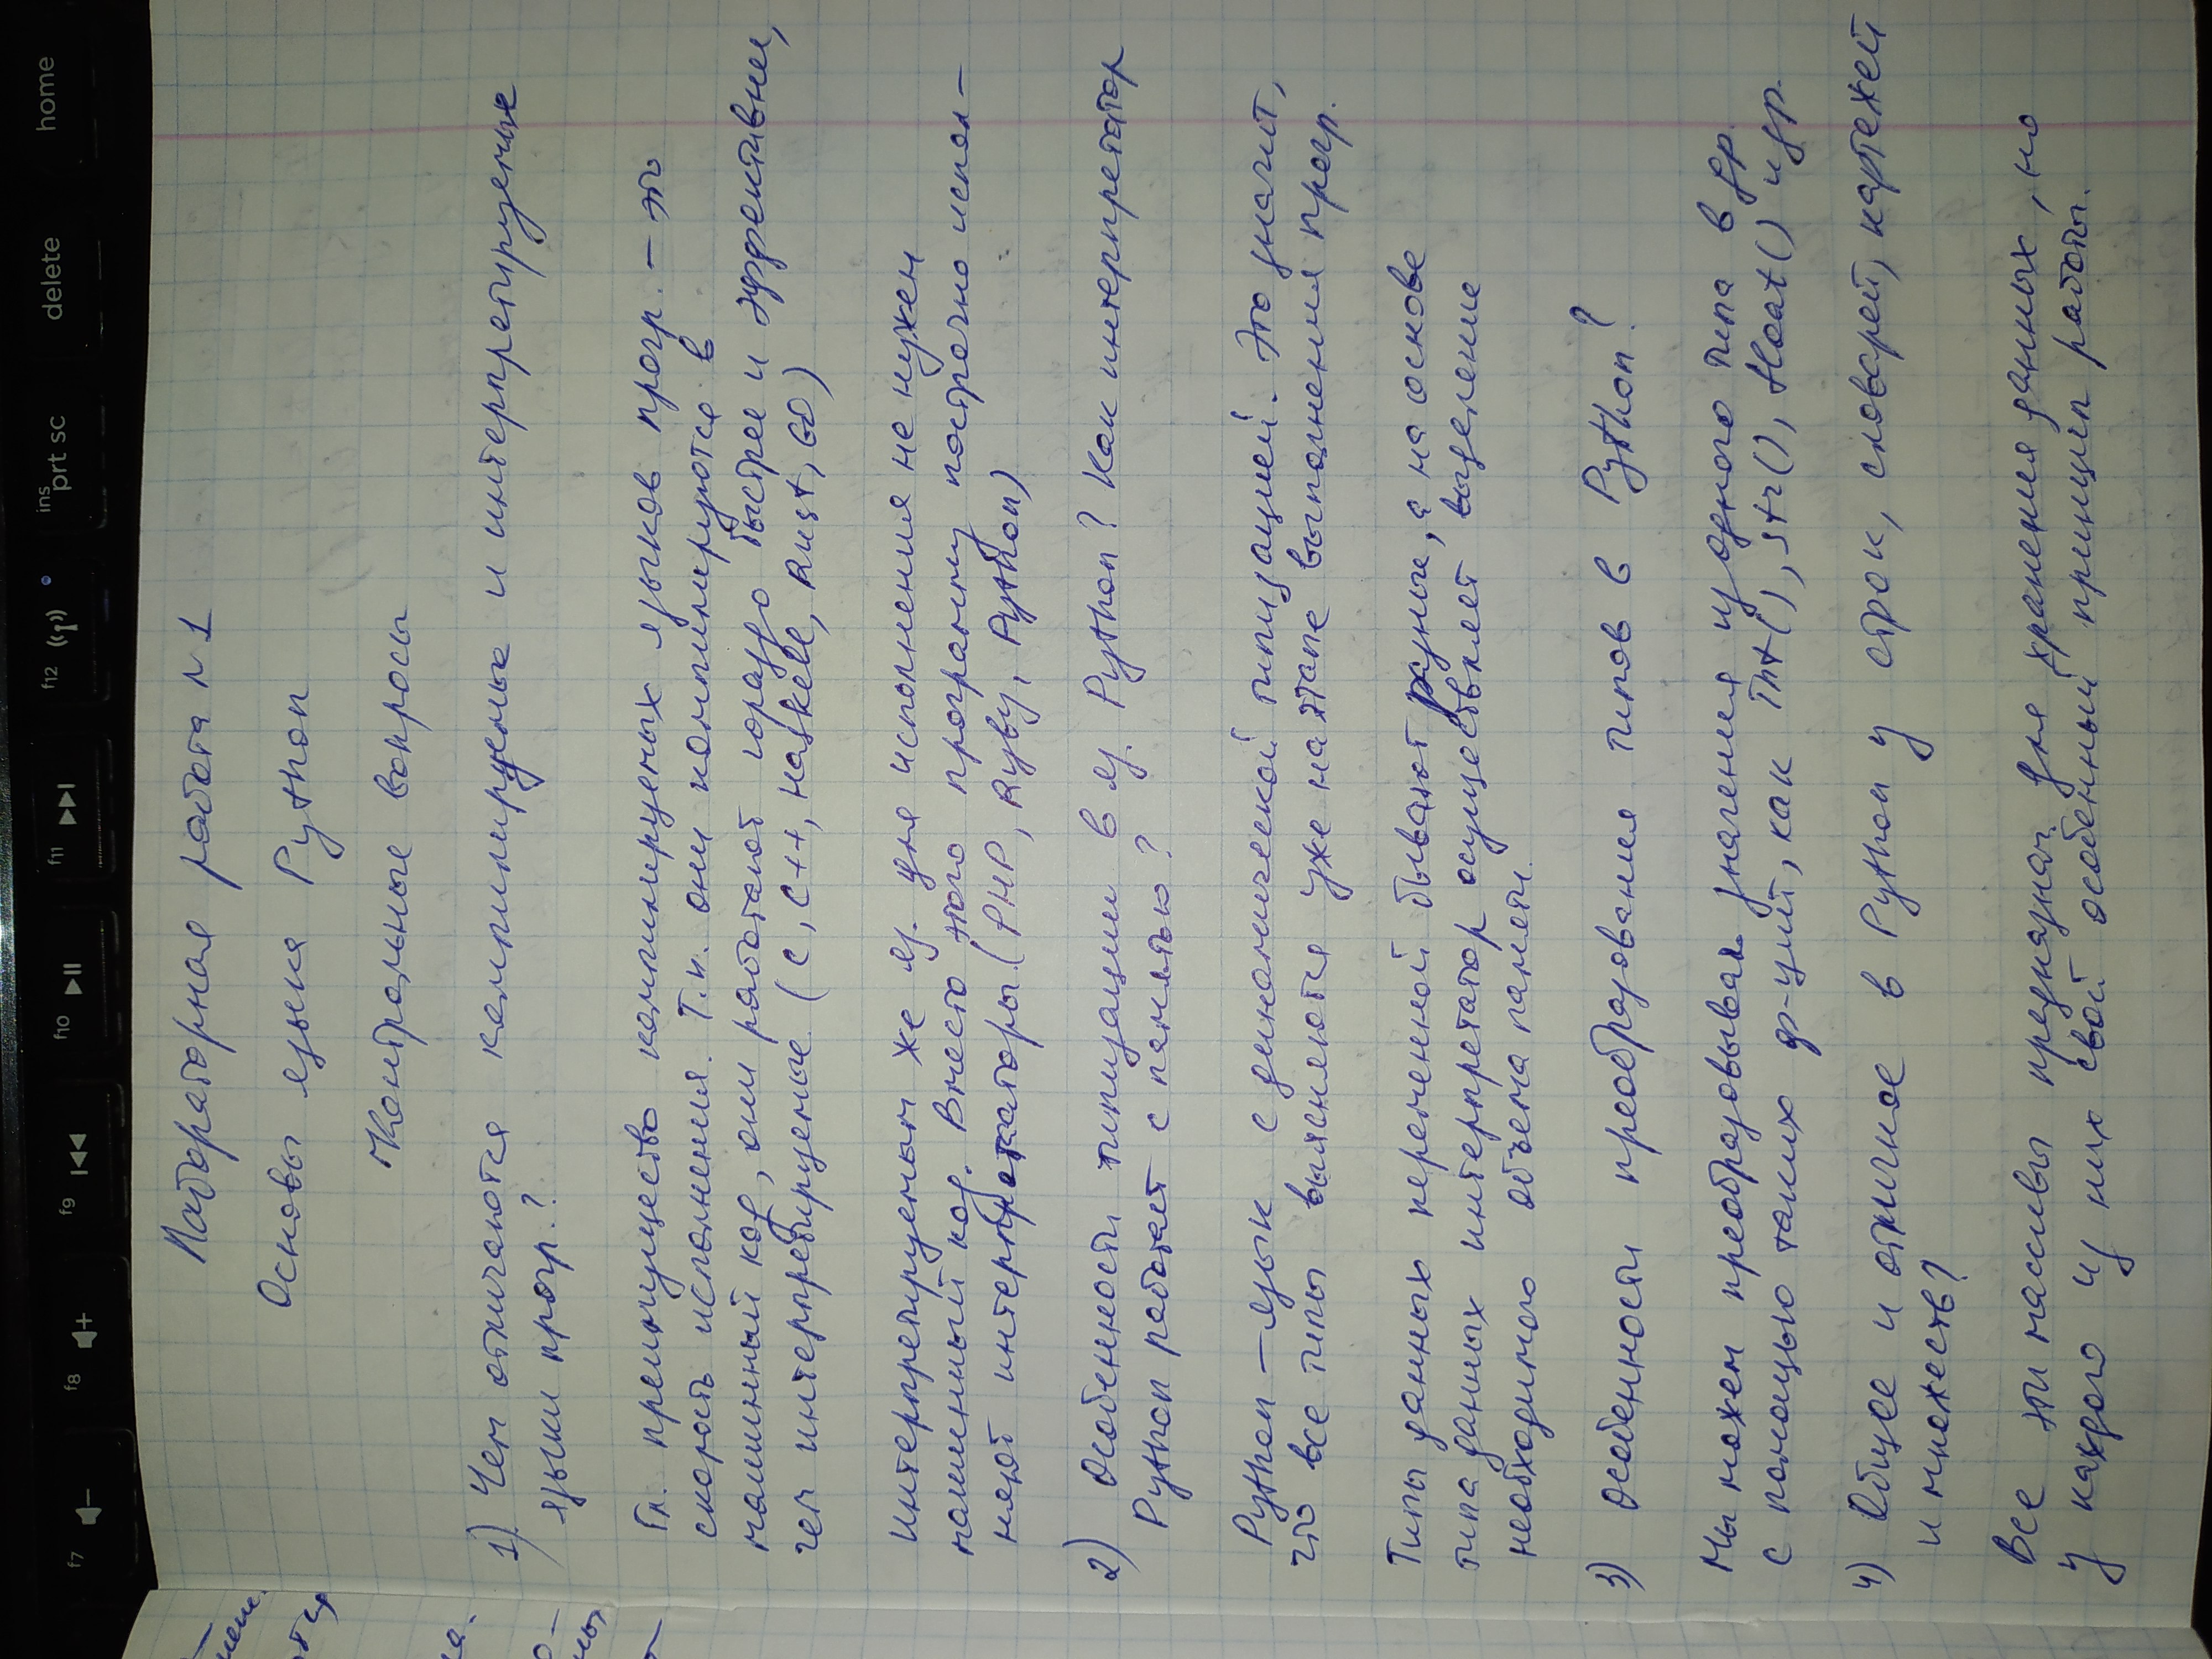 f7 f8 f9 f10 f11 f12 ins prt sc delete home
Лабораторная работа N 1
Основы языка Python
Контрольные вопросы
1) Чем отличаются компилируемые и интерпретируемые
языки прогр.?
Гл. преимущество компилируемых языков прогр. – это
скорость исполнения. Т.к. они компилируются в
машинный код, они работают гораздо быстрее и эффективнее,
чем интерпретируемые. (C, C++, Haskell, Rust, GO)
Интерпретируемым же яз. для исполнения не нужен
машинный код. Вместо этого программу построчно испол-
няют интерпретаторы (PHP, Ruby, Python)
2) Особенности типизации в яз. Python? Как интерпретатор
Python работает с памятью?
Python – язык с динамической типизацией. Это значит,
что все типы выясняются уже на этапе выполнения прогр.
Типы данных переменной бывают разные, а на основе
типа данных интерпретатор осуществляет выделение
необходимого объема памяти.
3) Особенности преобразования типов в Python?
Мы можем преобразовывать значения из одного типа в др.
с помощью таких ф-ций, как Int(), str(), float() и др.
4) Общее и отличное в Python у строк, словарей, кортежей
и множеств?
Все эти массивы предназнач. для хранения данных, но
у каждого из них свой особенный принцип работы.